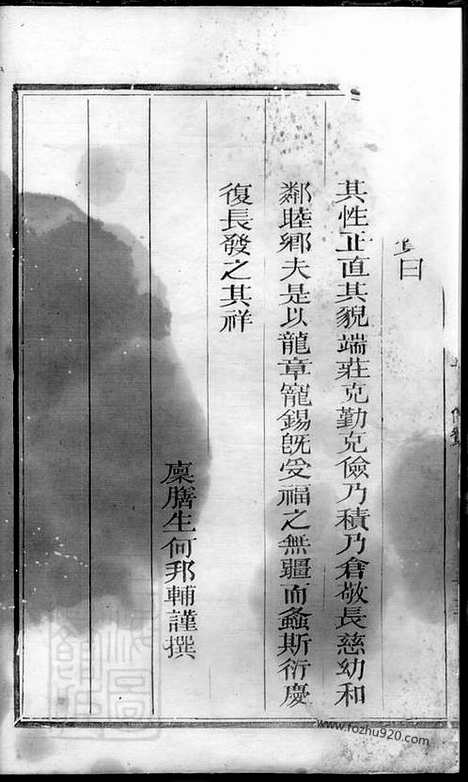 曰
其性正直其貌端莊克勤克儉乃積乃倉敬長慈幼和
鄰睦鄉夫是以龍章寵錫旣受福之無疆而螽斯衍慶
復長發之其祥
廩膳生何邦輔謹撰
www.fozhu920.com